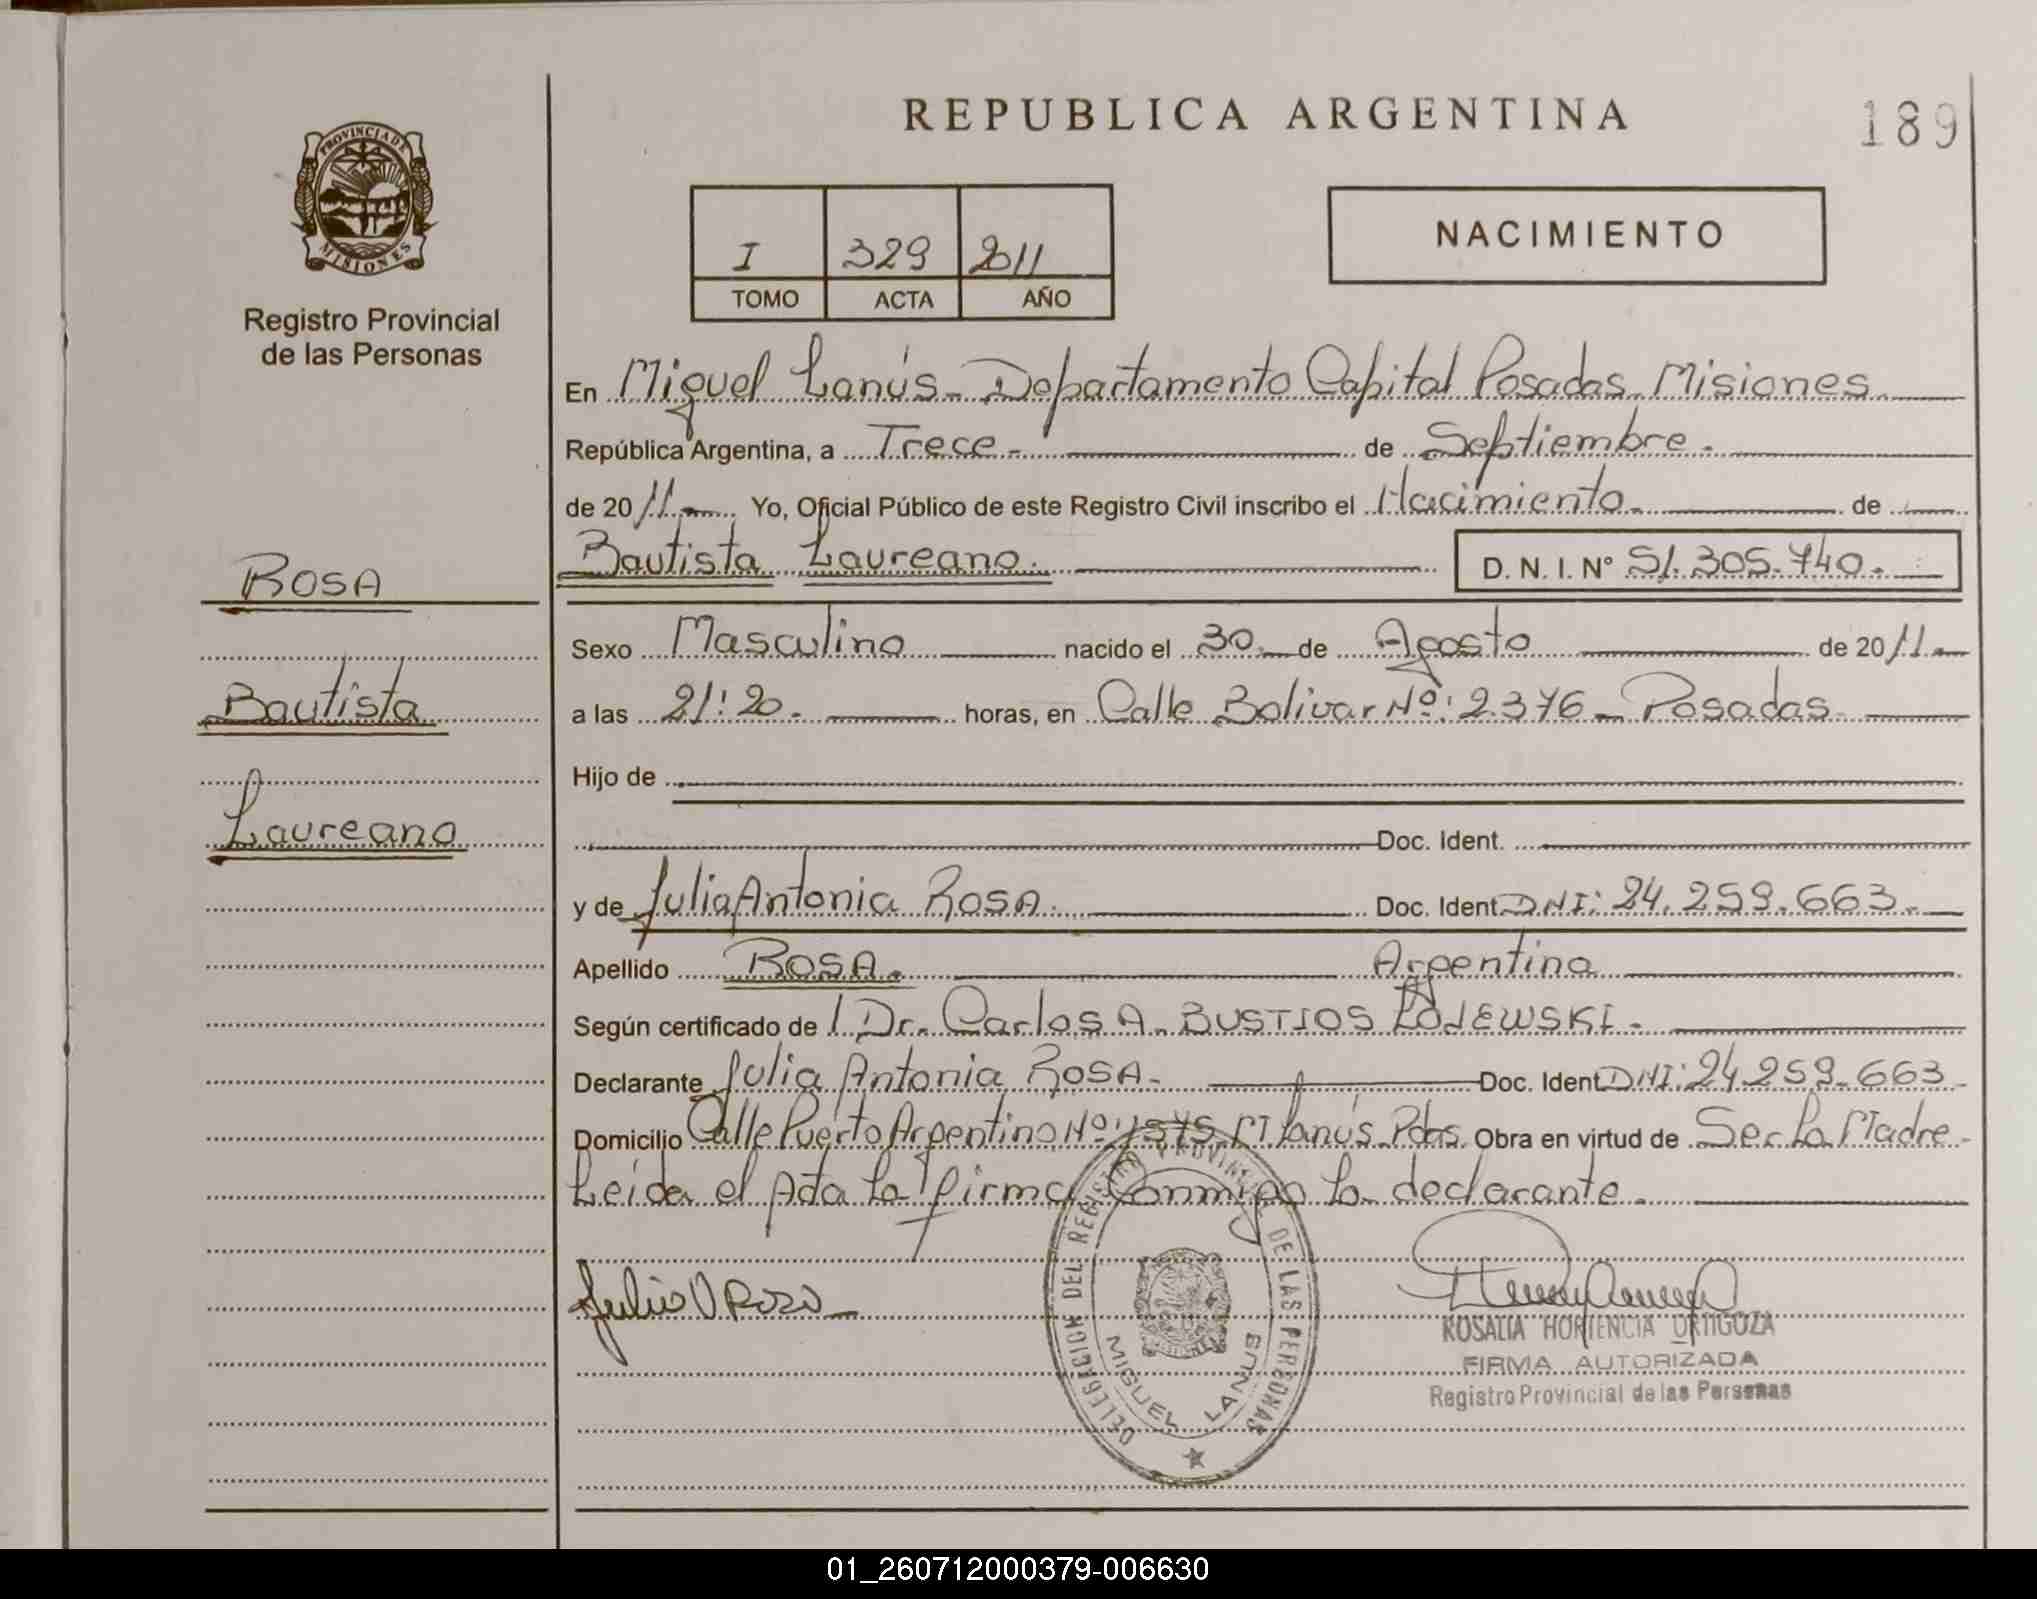 REPUBLICA ARGENTINA
189
PROVINCIA DE
MISIONES
Registro Provincial
de las Personas
I 329 2011
TOMO ACTA AÑO
NACIMIENTO
En Miguel Lanús - Departamento Capital Posadas. Misiones
República Argentina, a Trece - de Septiembre.
de 2011 Yo, Oficial Público de este Registro Civil inscribo el Nacimiento de
Bautista Laureano. D. N. I. N° 51.305.740.
ROSA
Bautista
Laureano
Sexo Masculino nacido el 30 de Agosto de 2011
a las 21:20. horas, en Calle Bolivar Nº: 2.376 - Posadas
Hijo de
Doc. Ident.
y de Julia Antonia ROSA. Doc. Ident DNI: 24.259.663.
Apellido ROSA. Argentina
Según certificado de Dr. Carlos A. BUSTIOS
Declarante Julia Antonia ROSA. Doc. Ident DNI: 24.259.663
Domicilio Calle Puerto Argentino Nº M Lanús Pdas. Obra en virtud de Ser La Madre
Leída el Acta La firma Conmigo la declarante.
DELEGACION DEL REGISTRO PROVINCIAL DE LAS PERSONAS
MIGUEL LANUS
ROSALIA HORTENCIA ORTIGOZA
FIRMA AUTORIZADA
Registro Provincial de las Personas
01_260712000379-006630